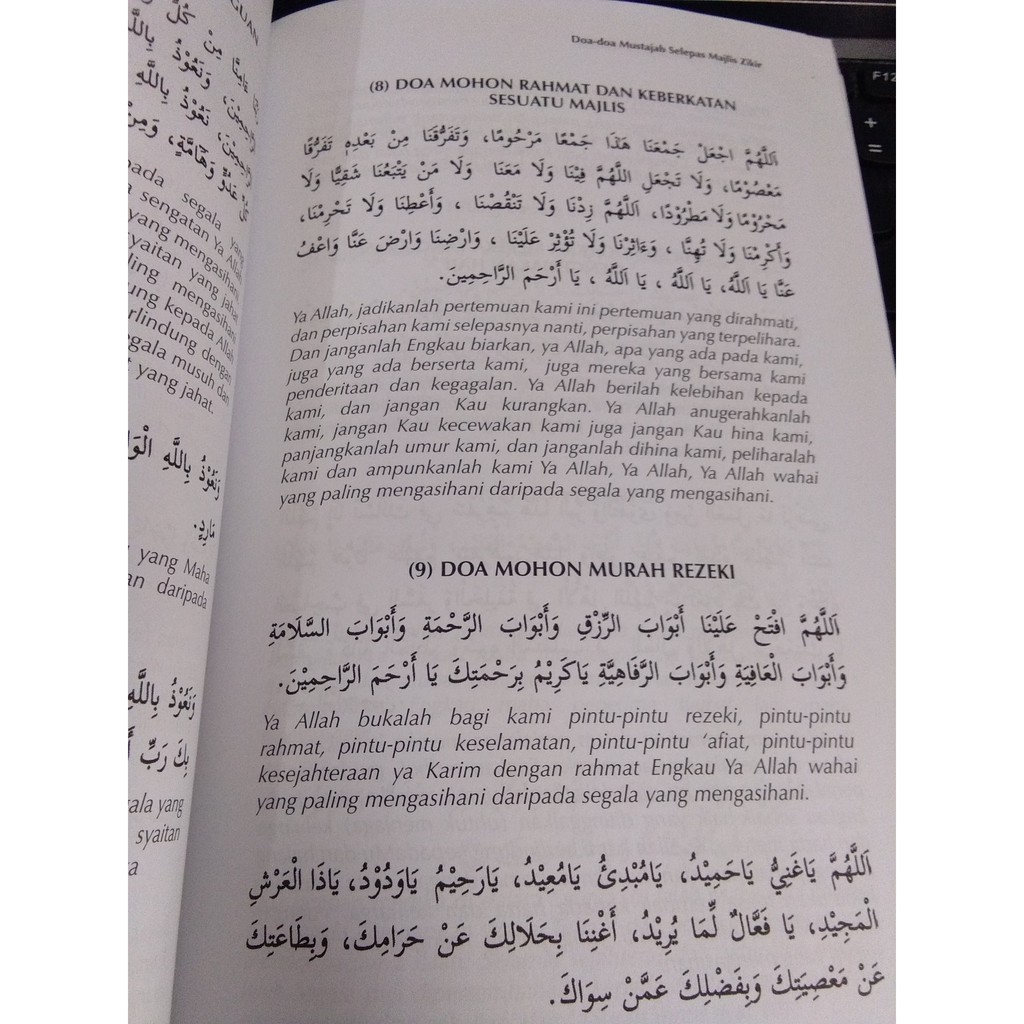 GUAN
وَنَعُوْذُ بِاللَّهِ
وَهَامَّةٍ، وَمِنْ
pada segala yang
sengatan Ya Allah
yang mengasihani
syaitan yang jahat
ling mengasihani
ung kepada Allah
rlindung dengan
egala musuh dan
t yang jahat.
وَنَعُوْذُ بِاللَّهِ الْوَا
مَارِدٍ.
yang Maha
an daripada
وَنَعُوْذُ بِاللَّهِ
بِكَ رَبِّ أَ
ala yang
syaitan
a
Doa-doa Mustajab Selepas Majlis Zikir
(8) DOA MOHON RAHMAT DAN KEBERKATAN
SESUATU MAJLIS
اَللَّهُمَّ اجْعَلْ جَمْعَنَا هَذَا جَمْعًا مَرْحُومًا، وَتَفَرُّقَنَا مِنْ بَعْدِهِ تَفَرُّقًا
مَعْصُوْمًا، وَلَا تَجْعَلِ اللَّهُمَّ فِيْنَا وَلَا مَعَنَا وَلَا مَنْ يَتْبَعُنَا شَقِيًّا وَلَا
مَحْرُوْمًا وَلَا مَطْرُوْدًا، اَللَّهُمَّ زِدْنَا وَلَا تَنْقُصْنَا ، وَأَعْطِنَا وَلَا تَحْرِمْنَا،
وَأَكْرِمْنَا وَلَا تُهِنَّا ، وَءَاثِرْنَا وَلَا تُؤْثِرْ عَلَيْنَا ، وَارْضِنَا وَارْضَ عَنَّا وَاعْفُ
عَنَّا يَا اَللَّهُ، يَا اَللَّهُ ، يَا اَللَّهُ ، يَا أَرْحَمَ الرَّاحِمِيْنَ.
Ya Allah, jadikanlah pertemuan kami ini pertemuan yang dirahmati,
dan perpisahan kami selepasnya nanti, perpisahan yang terpelihara.
Dan janganlah Engkau biarkan, ya Allah, apa yang ada pada kami,
juga yang ada berserta kami, juga mereka yang bersama kami
penderitaan dan kegagalan. Ya Allah berilah kelebihan kepada
kami, dan jangan Kau kurangkan. Ya Allah anugerahkanlah
kami, jangan Kau kecewakan kami juga jangan Kau hina kami,
panjangkanlah umur kami, dan janganlah dihina kami, peliharalah
kami dan ampunkanlah kami Ya Allah, Ya Allah, Ya Allah wahai
yang paling mengasihani daripada segala yang mengasihani.
(9) DOA MOHON MURAH REZEKI
اَللَّهُمَّ افْتَحْ عَلَيْنَا أَبْوَابَ الرِّزْقِ وَأَبْوَابَ الرَّحْمَةِ وَأَبْوَابَ السَّلَامَةِ
وَأَبْوَابَ الْعَافِيَةِ وَأَبْوَابَ الرَّفَاهِيَّةِ يَاكَرِيْمُ بِرَحْمَتِكَ يَا أَرْحَمَ الرَّاحِمِيْنَ.
Ya Allah bukalah bagi kami pintu-pintu rezeki, pintu-pintu
rahmat, pintu-pintu keselamatan, pintu-pintu ‘afiat, pintu-pintu
kesejahteraan ya Karim dengan rahmat Engkau Ya Allah wahai
yang paling mengasihani daripada segala yang mengasihani.
اَللَّهُمَّ يَاغَنِيُّ يَاحَمِيْدُ، يَامُبْدِئُ يَامُعِيْدُ، يَارَحِيْمُ يَاوَدُوْدُ، يَاذَا الْعَرْشِ
الْمَجِيْدِ، يَا فَعَّالٌ لِّمَا يُرِيْدُ، أَغْنِنَا بِحَلَالِكَ عَنْ حَرَامِكَ، وَبِطَاعَتِكَ
عَنْ مَعْصِيَتِكَ وَبِفَضْلِكَ عَمَّنْ سِوَاكَ.
F12
+
=